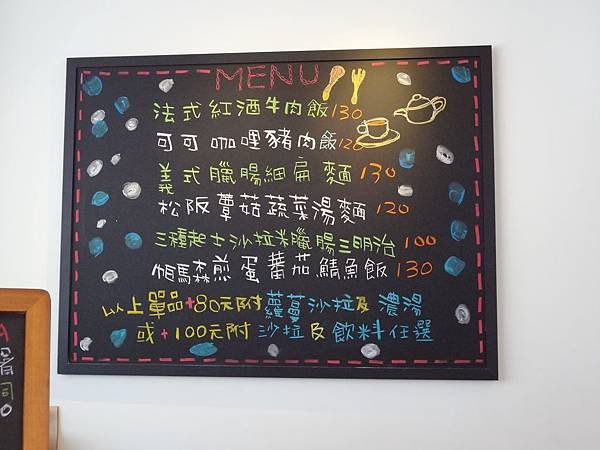 MENU
法式紅酒牛肉飯130
可可咖哩豬肉飯120
義式臘腸細扁麵130
松阪蕈菇蔬菜湯麵120
三種起士沙拉米臘腸三明治100
帕馬森煎蛋蕃茄鯖魚飯130
以上單品+80元附蘿蔓沙拉及濃湯
或+100元附沙拉及飲料任選
A
司